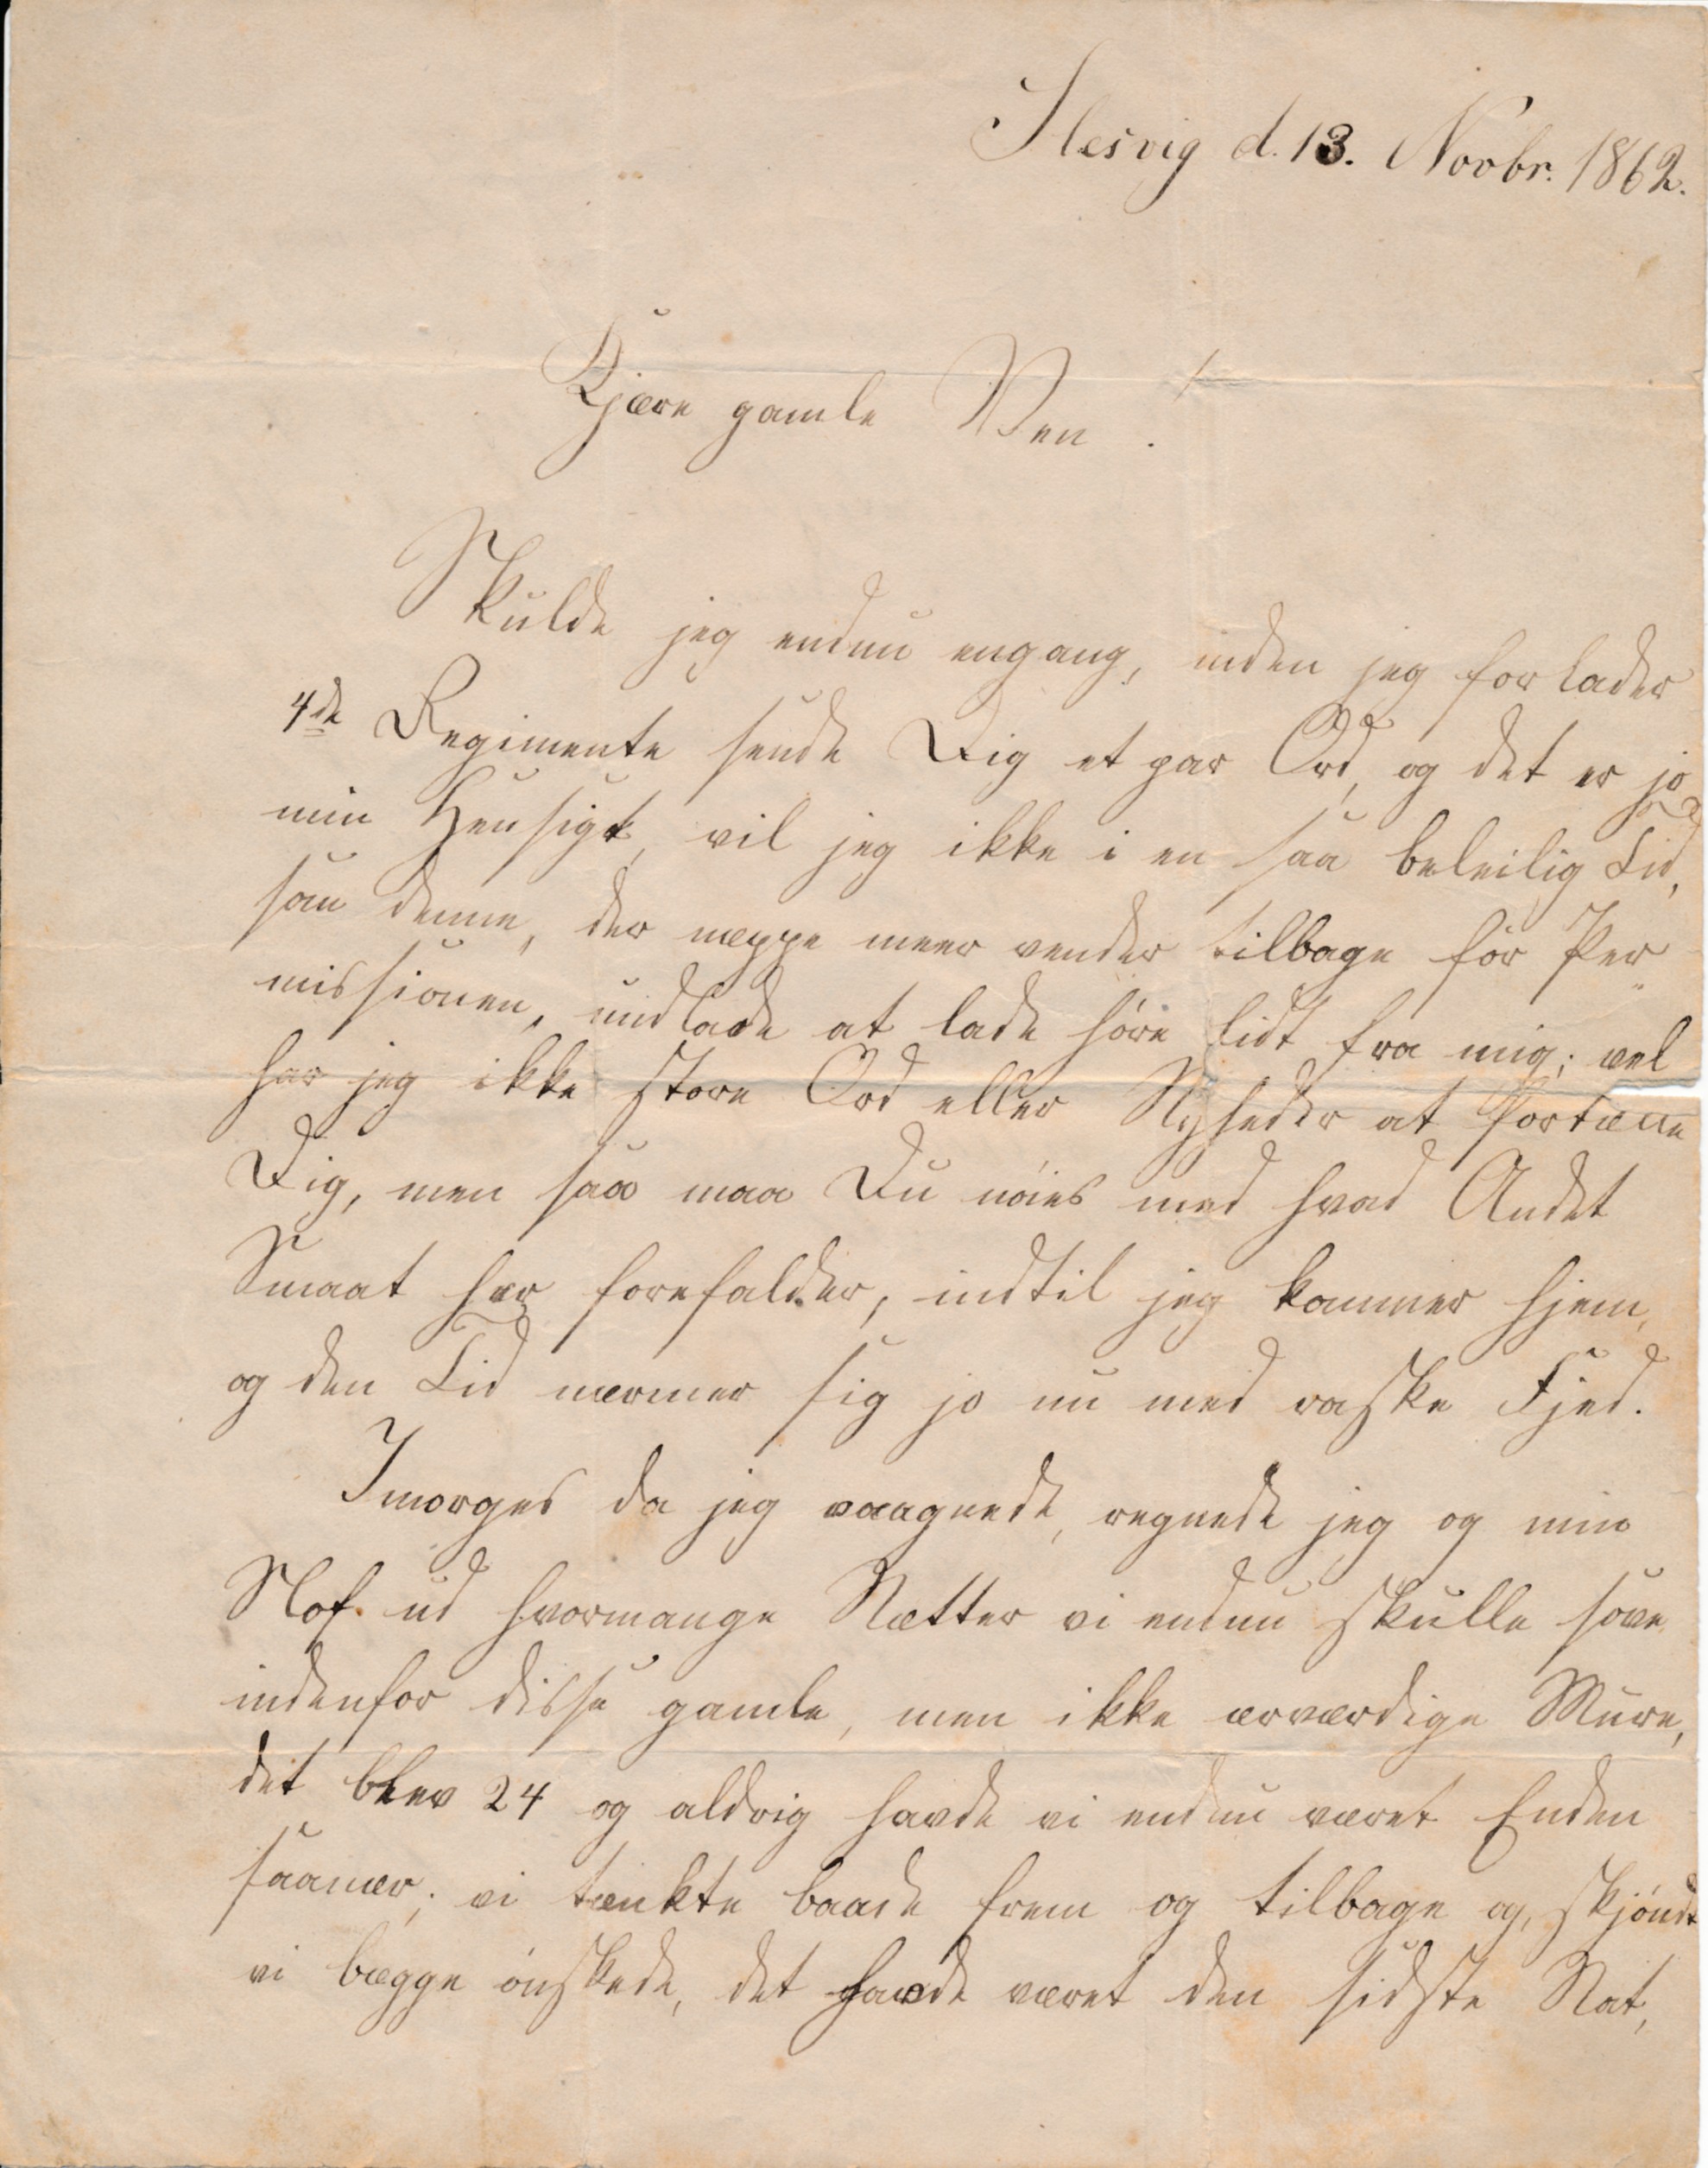 Slesvig d. 13. Novbr. 1862.
Kjære gamle Ven!
Skulde jeg endnu engang, inden jeg forlader
4de Regimente sende Dig et par Ord, og det er jo
min Hensigt, vil jeg ikke i en saa beleilig Tid,
som denne, der neppe meer vender tilbage før Per
missionen, undlade at lade høre lidt fra mig; vel
har jeg ikke store Ord eller Nyheder at fortælle
Dig, men saa maa Du nøies med hvad Andet
Smaat her forefalder, indtil jeg kommer hjem,
og den Tid nærmer sig jo nu med raske Fjed.
Imorges da jeg vaagnede, regnede jeg og min
Slof. ud hvormange Nætter vi endnu skulle sove
indenfor disse gamle, men ikke ærværdige Mure,
det blev 24 og aldrig havde vi endnu været Enden
saanær; vi tænkte baade frem og tilbage og, skjøndt
vi begge ønskede, det havde været den sidste Nat,